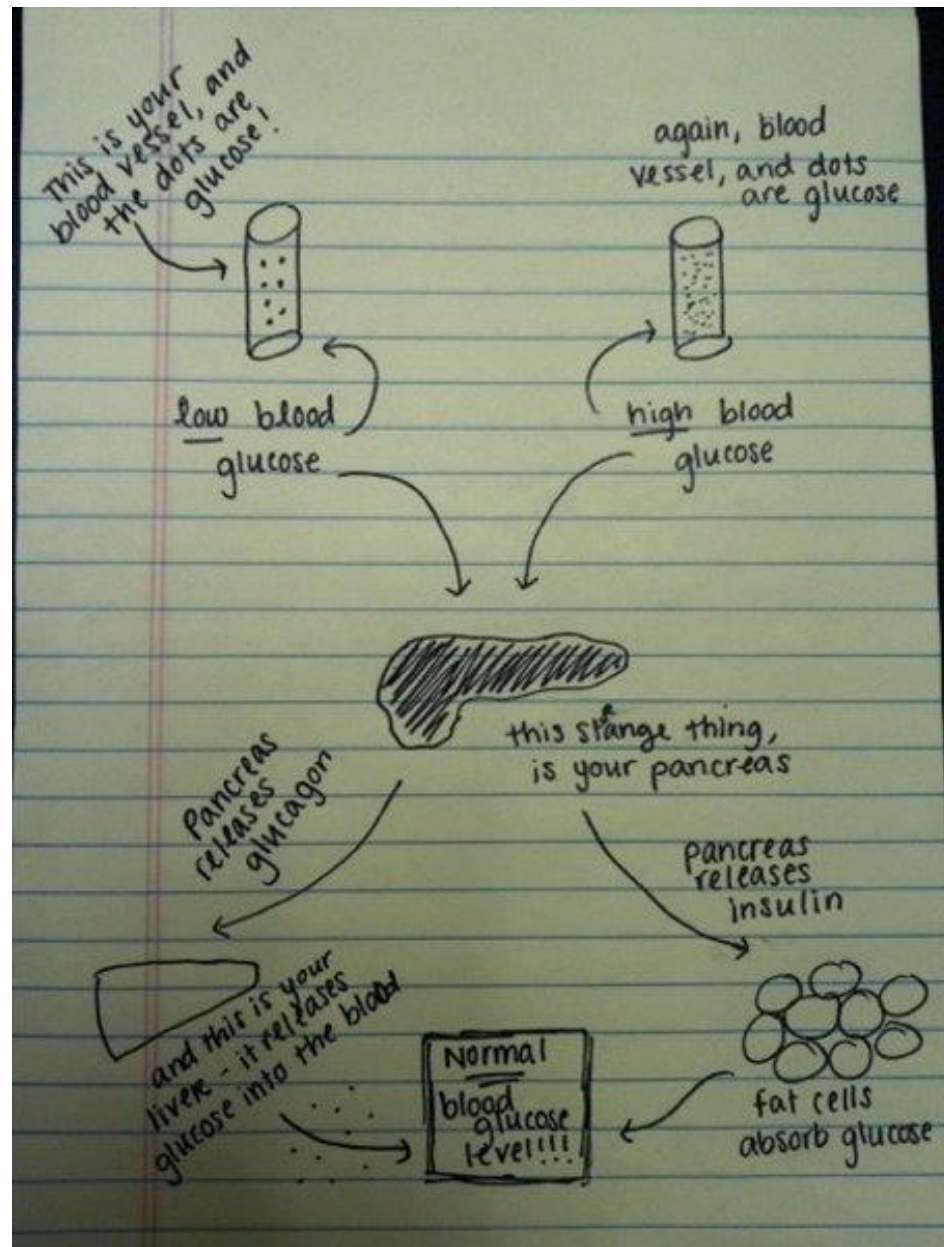 This is your
blood vessel, and
the dots are
glucose!
again, blood
vessel, and dots
are glucose
low blood
glucose
high blood
glucose
this strange thing,
is your pancreas
Pancreas
releases
glucagon
pancreas
releases
insulin
and this is your
liver - it releases
glucose into the blood
Normal
blood
glucose
level!!!
fat cells
absorb glucose